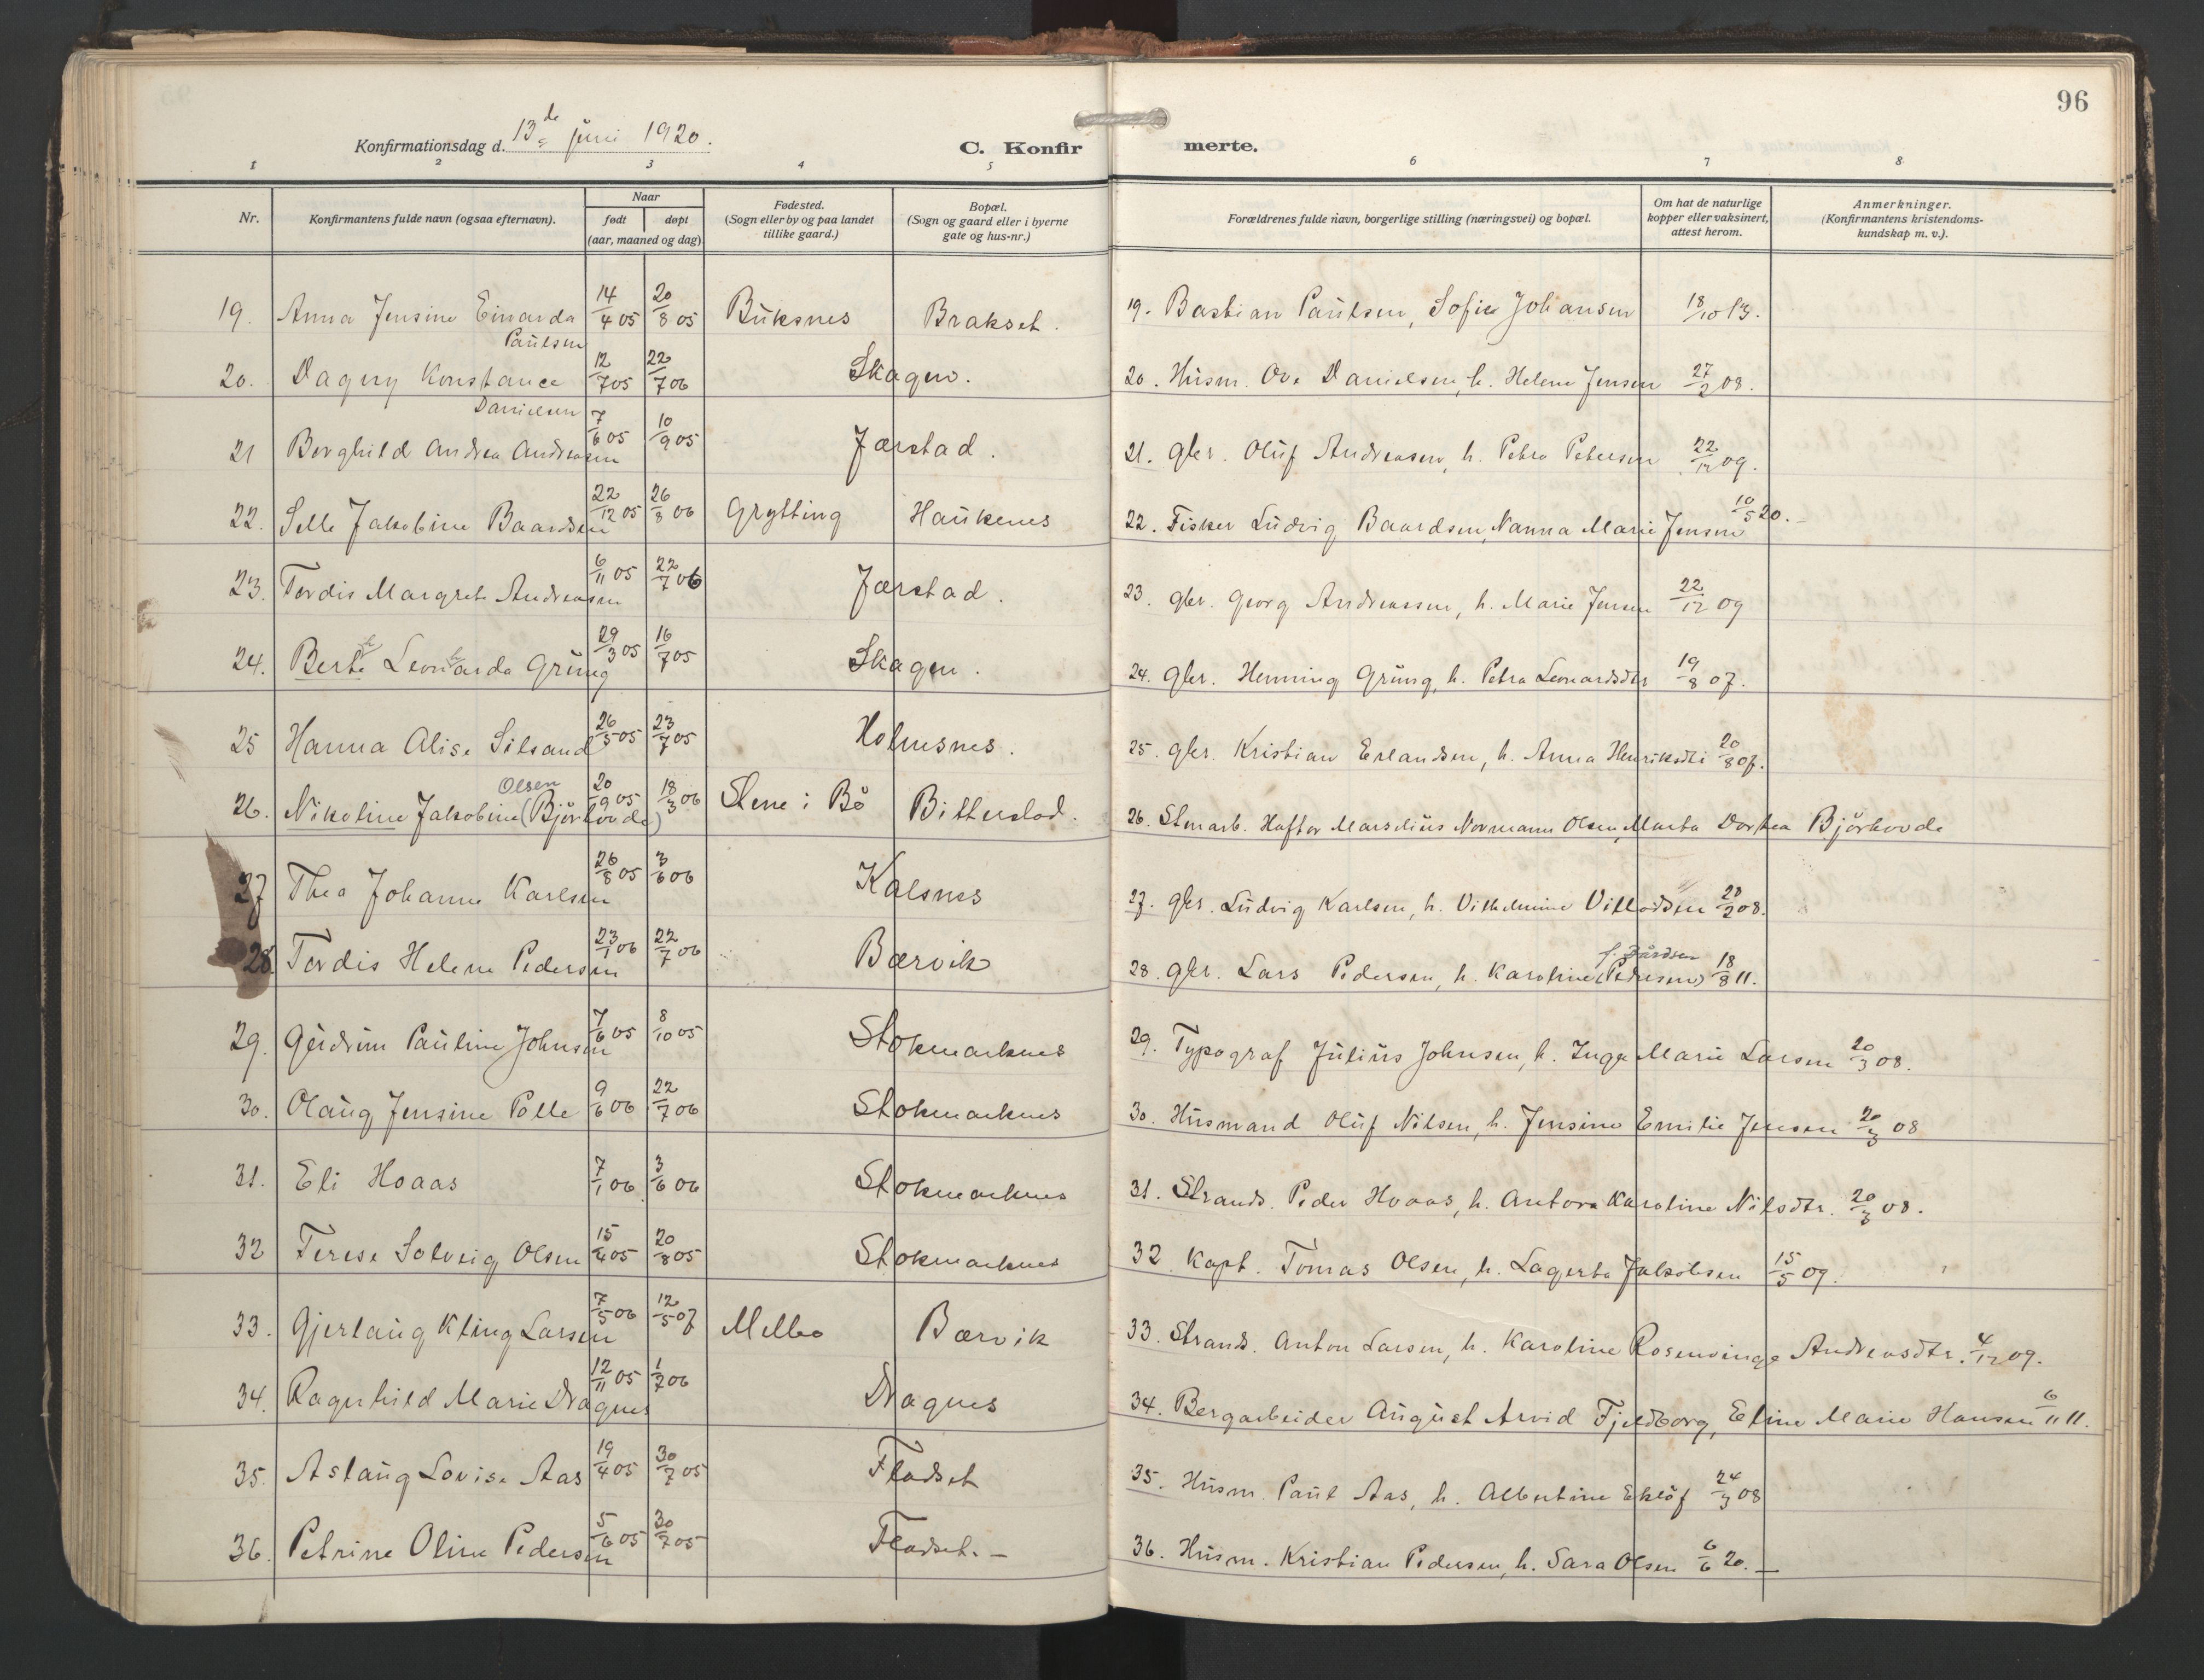 96
Konfirmationsdag d. 13de juni 1920.
C. Konfirmerte.
1 2 3 4 5 6 7 8
Nr. Konfirmantens fulde navn (ogsaa efternavn). Naar født døpt (aar, maaned og dag) Fødested. (Sogn eller by og paa landet tillike gaard.) Bopæl. (Sogn og gaard eller i byerne gate og hus-nr.) Forældrenes fulde navn, borgerlige stilling (næringsvei) og bopæl. Om hat de naturlige kopper eller vaksinert, attest herom. Anmerkninger. (Konfirmantens kristendomskundskap m. v.).
19. Anna Jensine Einarda Paulsen 14/4 05 20/8 05 Buksnes Brakset. 19. Bastian Paulsen, Sofie Johansen 18/10 13.
20. Dagny Konstance Danielsen 12/7 05 22/7 06 Skagen. 20. Husm. Ove Danielsen, h. Helene Jensen 27/2 08.
21 Borghild Andrea Andreasen 7/6 05 10/9 05 Jørstad. 21. gbr. Oluf Andreasen, h. Petra Petersen 22/12 09.
22. Selle Jakobine Baardsen 22/12 05 26/8 06 Grytting Haukenes 22. Fisker Ludvig Baardsen, Nanna Marie Jensen 10/5 20.-
23. Tordis Margrete Andreasen 6/11 05 22/7 06 Jørstad. 23. gbr. Georg Andreassen, h. Marie Jensen 22/12 09
24. Berte Leonharda Grung 29/3 05 16/7 05 Skagen. 24. gbr. Henning Grung, h. Petra Leonardsdtr 19/8 07.
25 Hanna Alise Silsand 26/5 05 23/7 05 Holmsnes. 25. gbr. Kristian Erlandsen, h. Anna Henriksdtr 20/8 07.
26. Nikoline Jakobine Olsen (Bjørhovde) 20/9 05 18/3 06 Stene i Bø Bitterstad. 26. Stenarb. Haftor Marselius Normann Olsen, Marta Dortea Bjørhovde
27 Thea Johanne Karlsen 26/8 05 3/6 06 Kalsnes 27. gbr. Ludvig Karlsen, h. Vilhelmine Villadsen 28/2 08.
28. Tordis Helene Pedersen 23/1 06 22/7 06 Børvik 28. gbr. Lars Pedersen, h. Karoline (Pedersen) f. Bårdsen 18/8 11.
29. Gudrun Pauline Johnsen 7/6 05 8/10 05 Stokmarknes 29. Typograf Julius Johnsen, h. Inga Marie Larsen 20/3 08.
30. Olaug Jensine Polle 9/6 06 22/7 06 Stokmarknes 30. Husmand Oluf Nilsen, h. Jensine Emilie Jensen 20/3 08
31. Eli Hoaas 7/1 06 3/6 06 Stokmarknes 31. Strands. Peder Hoaas, h. Antora Karoline Nilsdtr. 20/3 08.
32 Terese Solveig Olsen 15/4 05 20/8 05 Stokmarknes 32. Kapt. Tomas Olsen, h. Lagerta Jakobsen 15/5 09.
33. Gjerlaug Kling Larsen 7/5 06 12/5 07 Melbo Børvik 33. Strands. Anton Larsen, h. Karoline Rosenvinge Andreasdtr. 4/12 09.
34. Ragnhild Marie Dragnes 12/11 05 1/7 06 Dragnes 34. Bergarbeider August Arvid Fjeldborg, Eline Marie Hansen 6/11 11.
35. Aslaug Lovise Aas 19/4 05 30/7 05 Fladset 35. Husm. Paul Aas, h. Albertine Ekløf 24/3 08
36. Petrine Oline Pedersen 5/6 05 30/7 05 Fladset. - 36. Husm. Kristian Pedersen, h. Sara Olsen 6/6 20. -